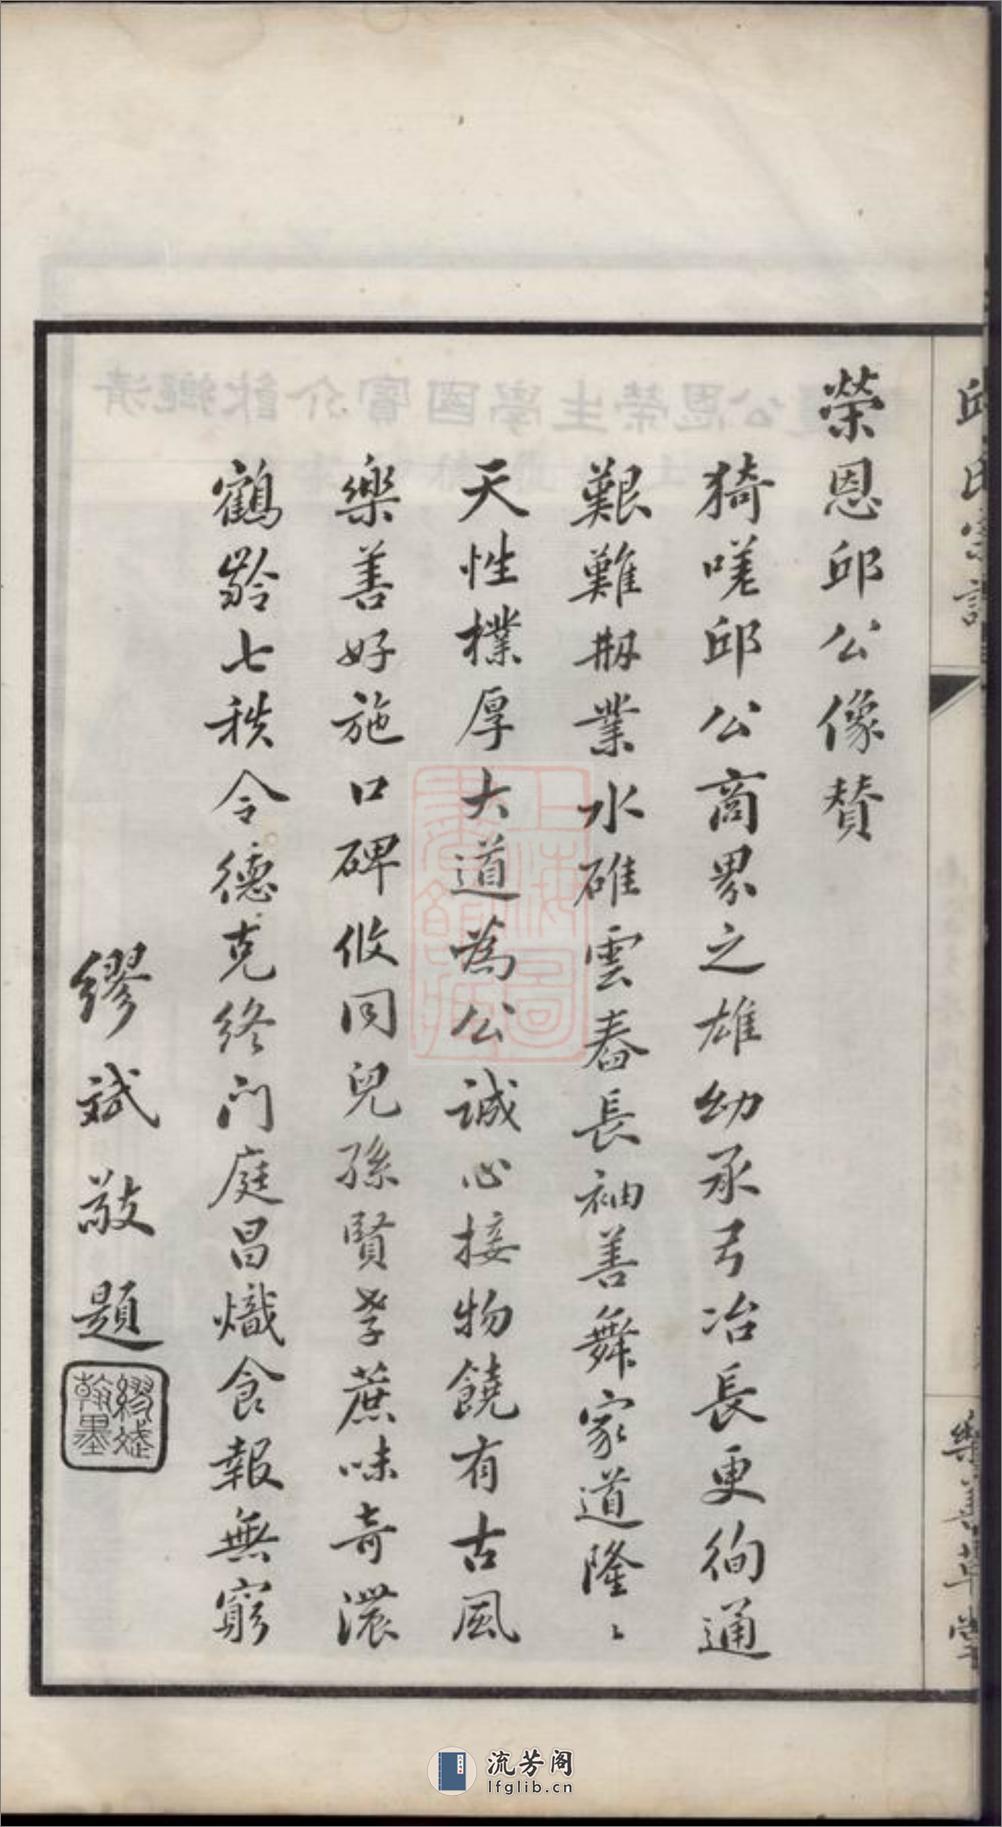 邱氏宗譜
樂善草堂
榮恩邱公像贊
猗嗟邱公商界之雄幼承弓冶長更徇通
艱難刱業水碓雲舂長袖善舞家道隆〻
天性樸厚大道為公誠心接物饒有古風
樂善好施口碑攸同兒孫賢孝蔗味奇濃
鶴齡七秩令德克終門庭昌熾食報無窮
繆斌敬題
繆斌
翰墨
上海圖
書館藏
流芳阁
lfglib.cn